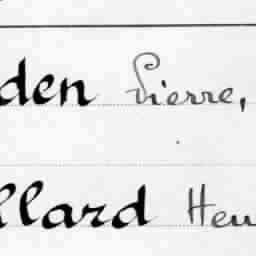 den Pierre,
llard Hen